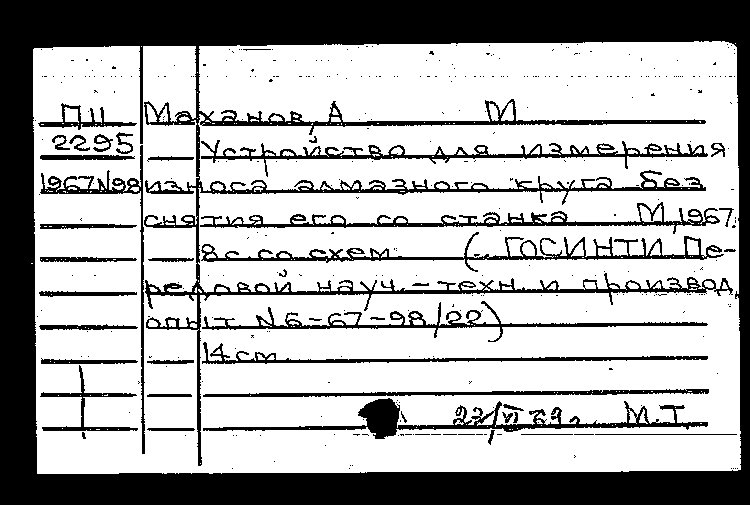 П11 Маханов, А М
2295 Устройство для измерения
1967 N98 износа алмазного круга без
снятия его со станка М, 1967.
8 с. со схем. (... ГОСИНТИ Пе-
редовой науч.-техн. и производ.
опыт N 6-67-98/22)
14 см.
22/VI 69 г. М.Т.